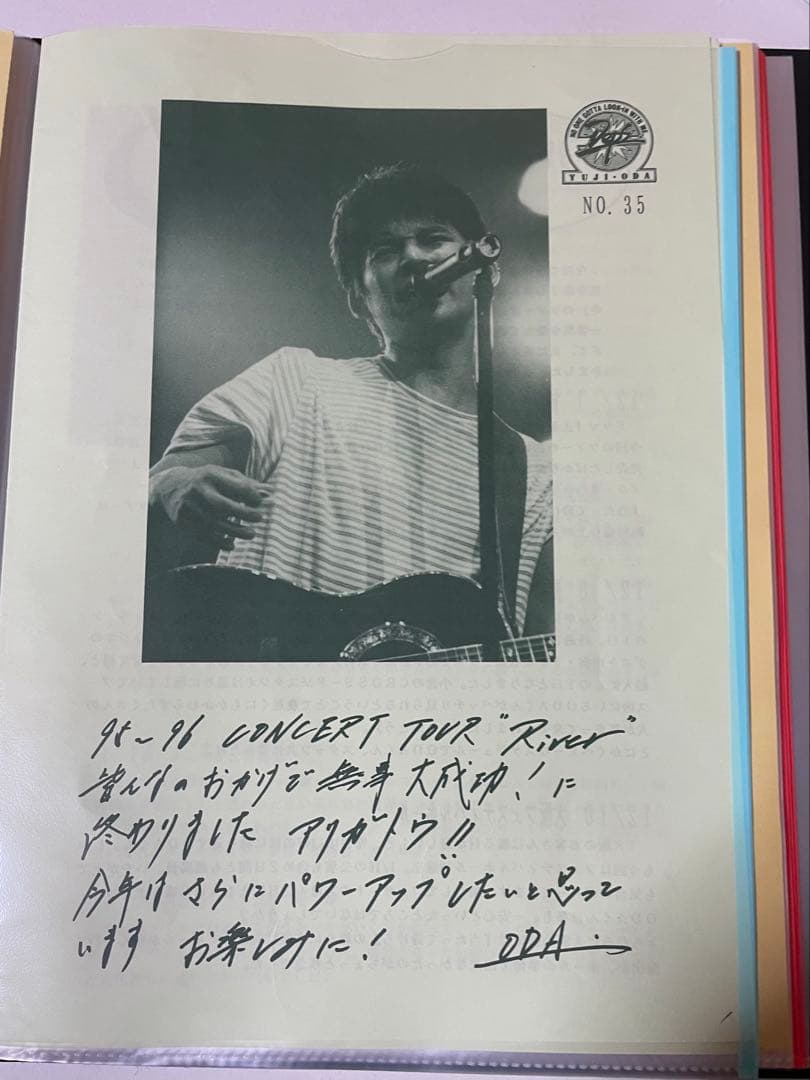 NO ONE GOTTA LOOK-IN WITH ME.
YUJI・ODA
NO. 35
95～96 CONCERT TOUR "River"
皆んなのおかげで無事大成功！に
終わりました アリガトウ!!
今年はさらにパワーアップしたいと思って
います お楽しみに！ ODA.